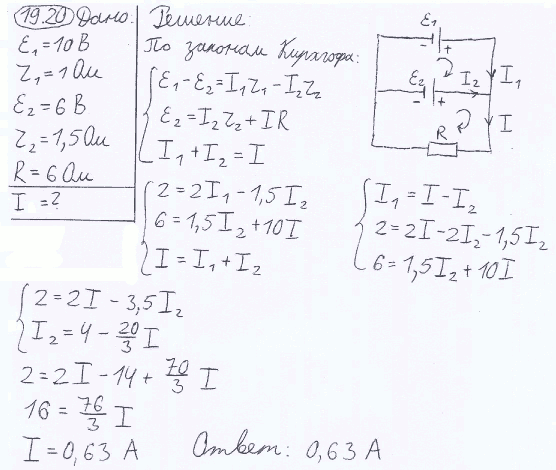 19.20 Дано:
ℰ₁=10В
r₁=1Ом
ℰ₂=6В
r₂=1,5Ом
R=6Ом
I=?
Решение:
По законам Кирхгофа:
ℰ₁-ℰ₂=I₁r₁-I₂r₂
ℰ₂=I₂r₂+IR
I₁+I₂=I
2=2I₁-1,5I₂
6=1,5I₂+10I
I=I₁+I₂
I₁=I-I₂
2=2I-2I₂-1,5I₂
6=1,5I₂+10I
2=2I-3,5I₂
I₂=4-20/3 I
2=2I-14+70/3 I
16=76/3 I
I=0,63 А
Ответ: 0,63 А
ℰ₁
- +
I₁
ℰ₂ I₂
- +
I
R